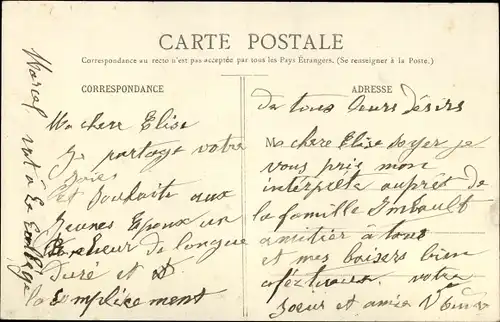 CARTE POSTALE
Correspondance au recto n'est pas acceptée par tous les Pays Étrangers. (Se renseigner à la Poste.)
CORRESPONDANCE
Ma chere Elise
Je partage votre
joies
et souhaite aux
jeunes Epoux un
Bonheur de longue
Duré et
la complicement
Marcel vat à Le
ADRESSE
da tous leurs désirs
Ma chere Elise soyer je
vous pris mon
interprete auprêt de
la famille Imbault
amitier à tous
et mes baisers bien
votre
soeur et amie